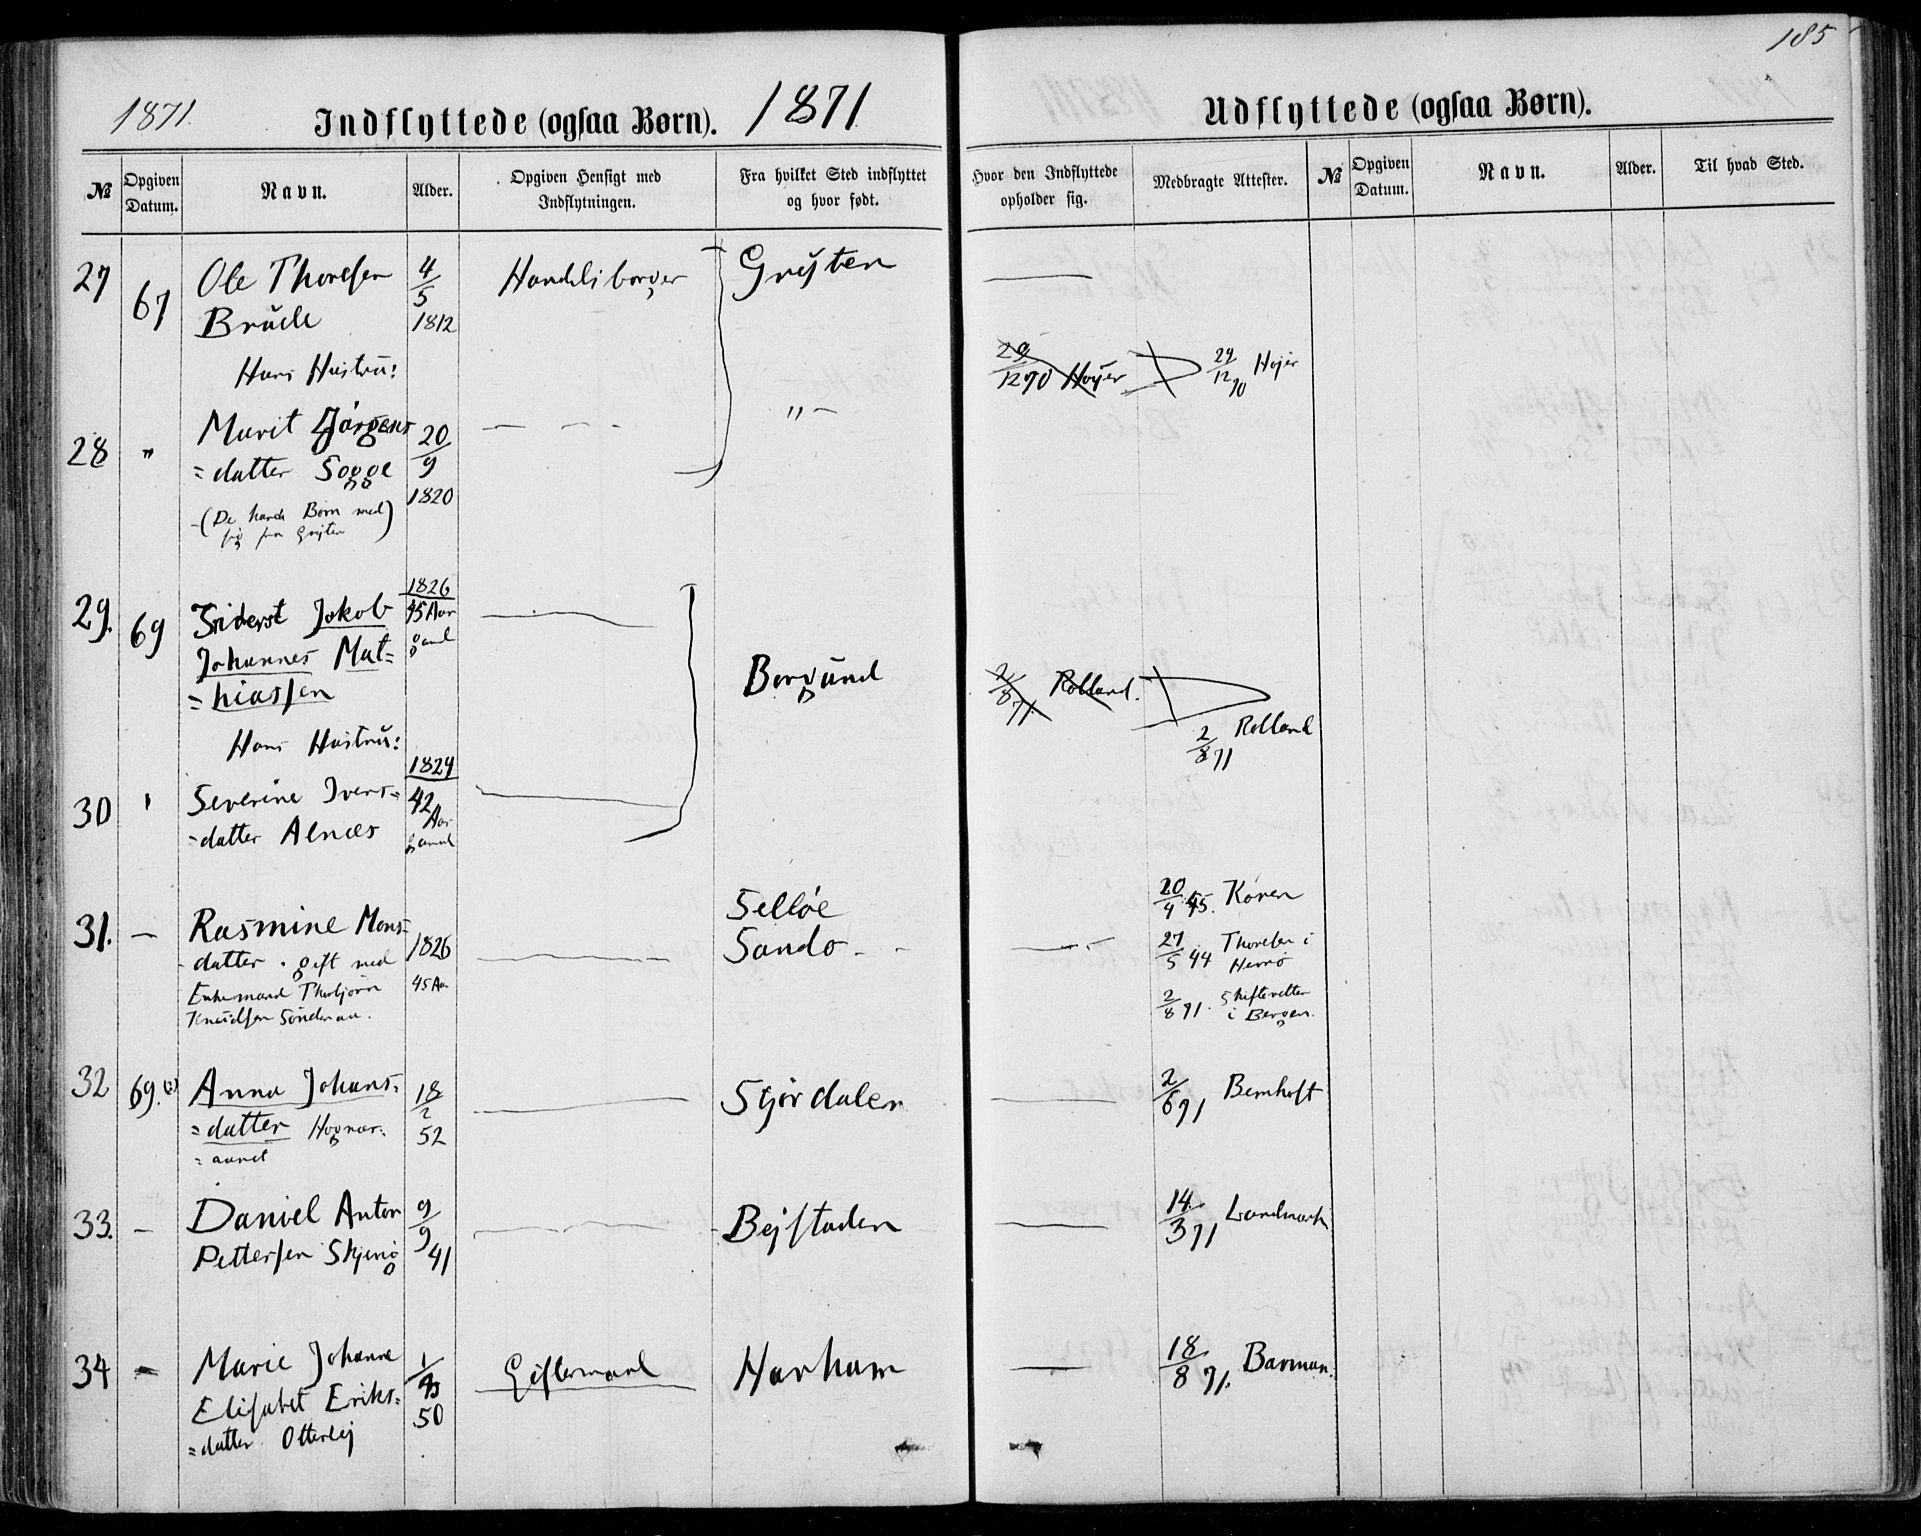 185
1871.
Indflyttede (ogsaa Børn).
1871
Udflyttede (ogsaa Børn).
№
Opgiven Datum.
Navn.
Alder.
Opgiven Hensigt med Indflytningen.
Fra hvilket Sted indflyttet og hvor født.
Hvor den Indflyttede opholder sig.
Medbragte Attester.
№
Opgiven Datum.
Navn.
Alder.
Til hvad Sted.
27
67
Ole Thoresen
Brude
4/5
1812
Handelsborger
Gryten
Hans Hustru:
29/12 70 Hojer
29/12 70 Hojer
28
"
Marit Jørgens
=datter Sogge
20/9
1820
" –
(De havde Børn med
sig fra Gryten)
29.
69
Jakob
Johannes Mat=
=hiassen
1826
45 Aar
gaml
Borgund
2/8 71. Rolland.
2/8 71 Rolland
Hans Hustru:
30
Severine Ivers=
=datter Alnæs
1829
42
Aar
gamel
31.
–
Rasmine Mons=
datter . gift med
Enkemand Thorbjørn
Knudsen
1826
45 Aar
Selløe
Sando
20/4 45. Koren
27/5 44 Thoresen i
Herrø
2/8 71. Skifteretten
i Bergen.
32
69.
Anna Johans=
=datter
18/2
52
Stjørdalen
2/6 71
33.
–
Daniel Anton
Pettersen
9/9
41
Bejstaden
14/3 71 Landmark
34
–
Marie Johanne
Elisabet Eriks=
=datter Otterlej
50
Giftermaal
Harham
18/8 71. Barman.